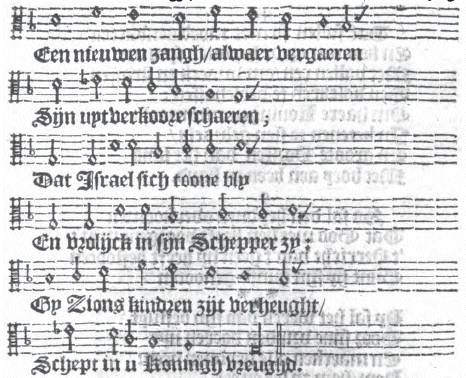 Een nieuwen zangh/alwaer vergaeren
Sijn uytverkooze schaeren
Dat Israel sich toone bly
En vrolijck in sijn Schepper zy :
Gy Zions kindren zijt verheught/
Schept in u Koningh vreughd.